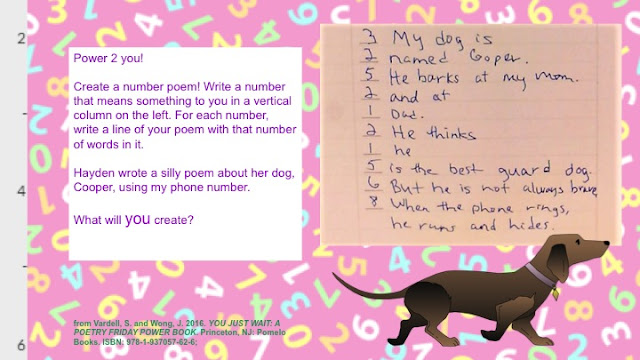 2
4
6
Power 2 you!
Create a number poem! Write a number
that means something to you in a vertical
column on the left. For each number,
write a line of your poem with that number
of words in it.
Hayden wrote a silly poem about her dog,
Cooper, using my phone number.
What will you create?
3 My dog is
2 named Cooper.
5 He barks at my mom.
2 and at
1 Dad.
2 He thinks
1 he
5 is the best guard dog.
6 But he is not always brave
8 When the phone rings,
he runs and hides.
from Vardell, S. and Wong, J. 2016. YOU JUST WAIT: A
POETRY FRIDAY POWER BOOK. Princeton, NJ: Pomelo
Books. ISBN: 978-1-937057-62-6;